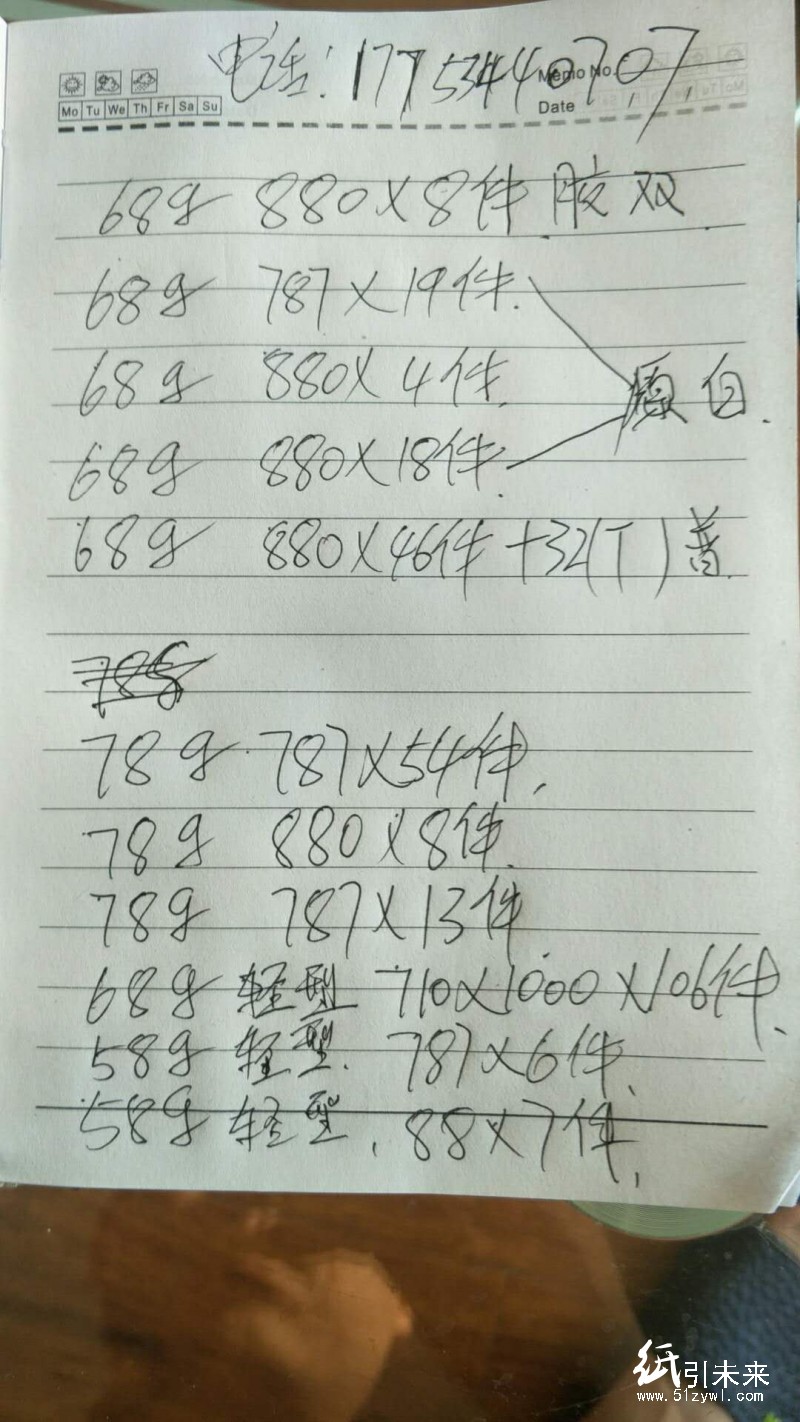 电话:17753440707
Memo No.
Mo Tu We Th Fr Sa Su
Date
68g 880×8件 胶双.
68g 787×19件.
68g 880×4件.
原白.
68g 880×18件.
68g 880×46件+32(T)普.
78g
78g 787×54件.
78g 880×8件.
78g 787×13件
68g 轻型 710×1000×106件.
58g 轻型. 787×6件.
58g 轻型, 88×7件.
纸引未来
www.51zywl.com